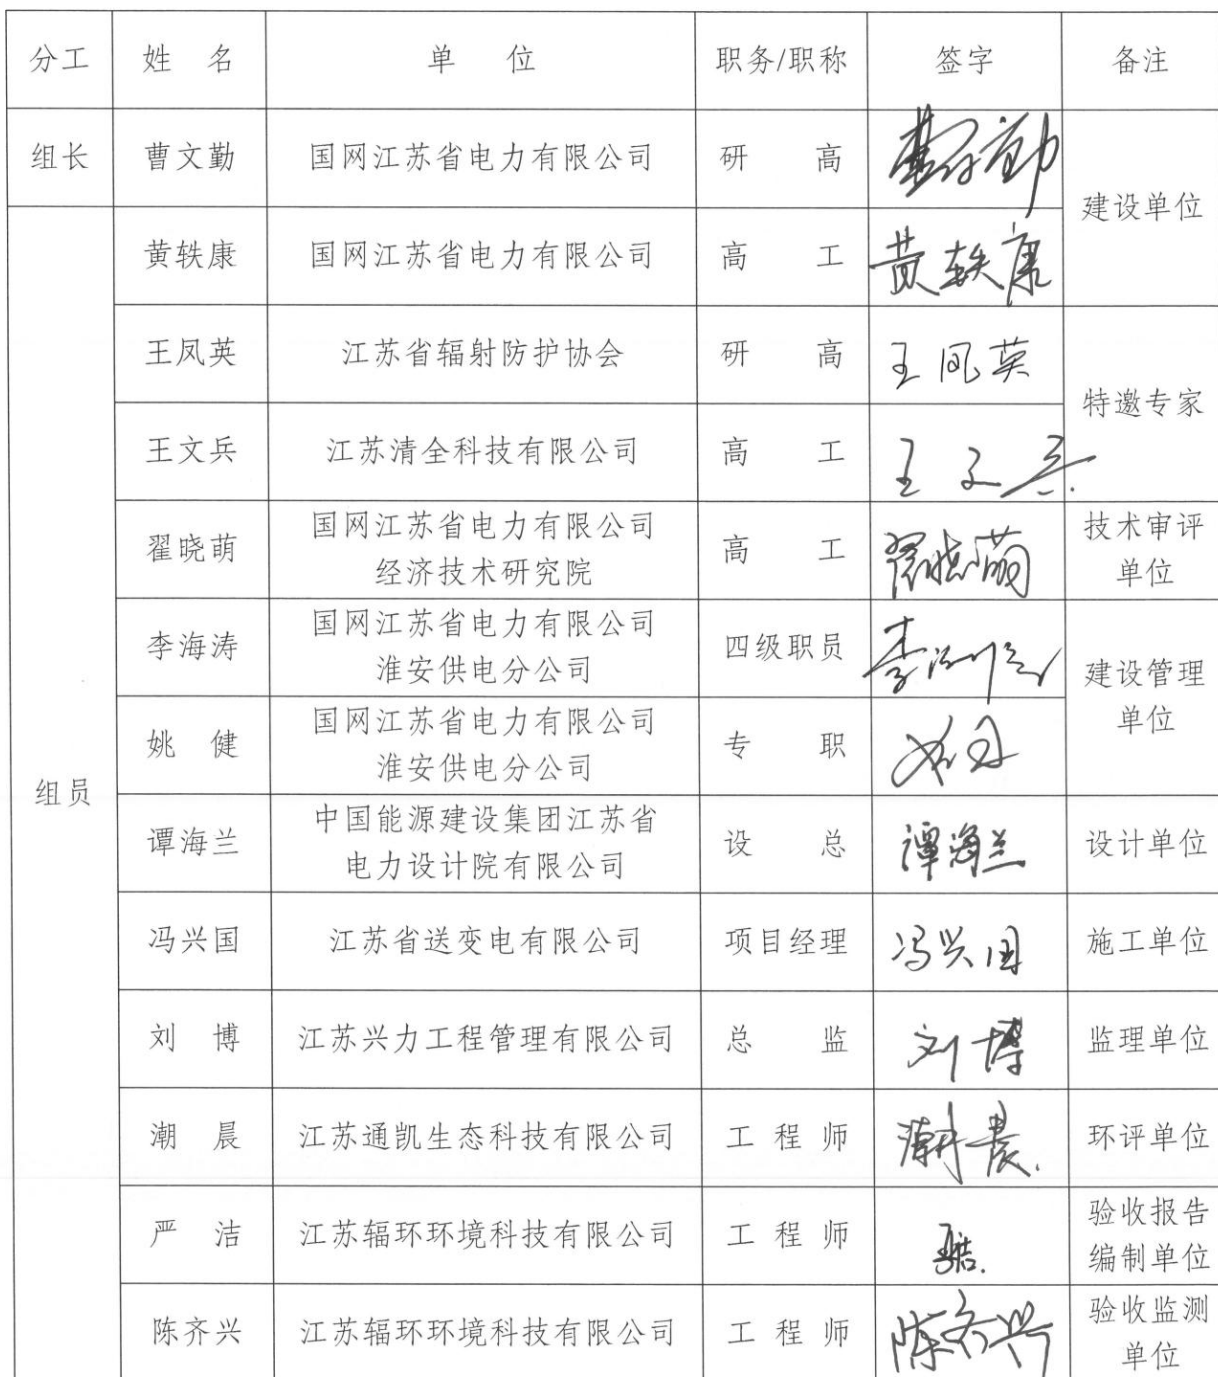 分工 姓 名 单 位 职务/职称 签字 备注
组长 曹文勤 国网江苏省电力有限公司 研 高 曹文勤
建设单位
黄轶康 国网江苏省电力有限公司 高 工 黄轶康
王凤英 江苏省辐射防护协会 研 高 王凤英
特邀专家
王文兵 江苏清全科技有限公司 高 工 王文兵
国网江苏省电力有限公司
经济技术研究院
翟晓萌 高 工 翟晓萌
技术审评
单位
国网江苏省电力有限公司
淮安供电分公司
李海涛 四级职员 李海涛
建设管理
单位
国网江苏省电力有限公司
淮安供电分公司
姚 健 专 职
组员
中国能源建设集团江苏省
电力设计院有限公司
谭海兰 设 总 谭海兰 设计单位
冯兴国 江苏省送变电有限公司 项目经理 冯兴国 施工单位
刘 博 江苏兴力工程管理有限公司 总 监 刘博 监理单位
潮 晨 江苏通凯生态科技有限公司 工 程 师 潮晨 环评单位
严 洁 江苏辐环环境科技有限公司 工 程 师
验收报告
编制单位
陈齐兴 江苏辐环环境科技有限公司 工 程 师 陈齐兴
验收监测
单位